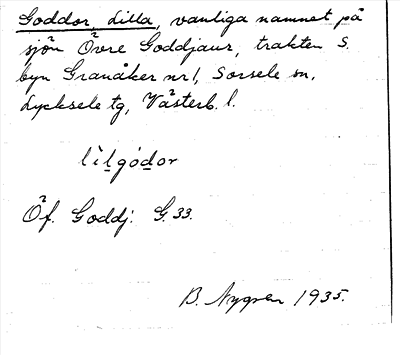 Goddor, Lilla, vanliga namnet på
sjön Övre Goddjaur, trakten S.
byn Granåker nr 1, Sorsele sn,
Lycksele tg, Västerb. l.
lìlgódor
Öf. Goddj. G. 33.
B. Nygren 1935.